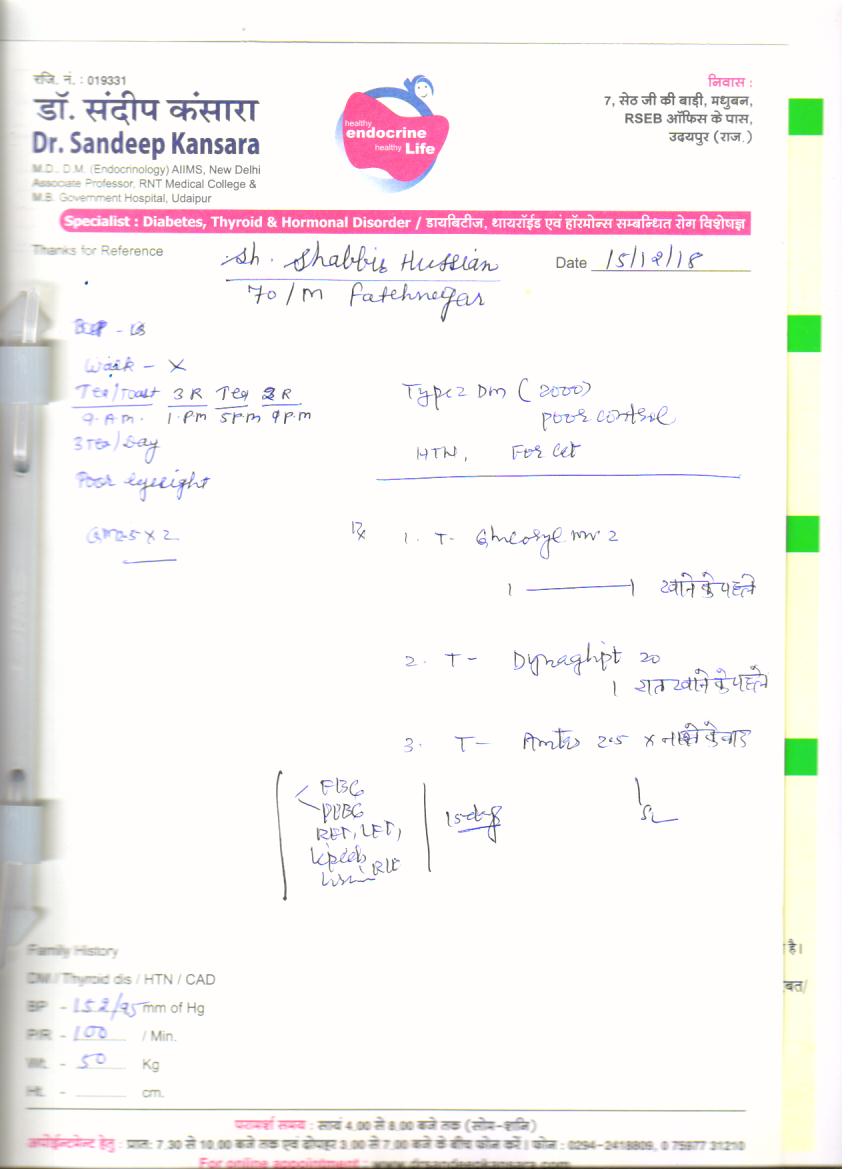 रजि. नं. : 019331
डॉ. संदीप कंसारा
Dr. Sandeep Kansara
M.D., D.M. (Endocrinology) AIIMS, New Delhi
Associate Professor, RNT Medical College &
M.B. Government Hospital, Udaipur
healthy
endocrine
healthy Life
निवास :
7, सेठ जी की बाड़ी, मधुबन,
RSEB ऑफिस के पास,
उदयपुर (राज.)
Specialist : Diabetes, Thyroid & Hormonal Disorder / डायबिटीज, थायरॉईड एवं हॉरमोन्स सम्बन्धित रोग विशेषज्ञ
Thanks for Reference
Sh. Shabbir Hussian
Date 15/12/18
70/M Fatehnagar
Walk - X
Tea/Toast 3 R Tea 2 R
9. A.M. 1. Pm 5 P.m 9 p.m
3 Tea/Day
Poor eyesight
Type 2 Dm (2000)
poor control
HTN, For
Rx
1. T- mv 2
1 ——— 1 खाने के पहले
2. T- Dynaglipt 20
1 रात खाने के पहले
3. T- 2.5 x नाश्ते के बाद
FBG
PPBG
RFT, LFT,
Lipids
Urine R/E
15 days
Family History
DM / Thyroid dis / HTN / CAD
BP - 152/95 mm of Hg
P/R - 100 / Min.
Wt. - 50 Kg
Ht. - cm.
है।
परामर्श समय : सायं 4.00 से 8.00 बजे तक (सोम-शनि)
अपोईन्टमेन्ट हेतु : प्रातः 7.30 से 10.00 बजे तक एवं दोपहर 3.00 से 7.00 बजे के बीच फोन करें। फोन : 0294-2418809, 0 75977 31210
For online appointment : www.drsandeepkansara.com